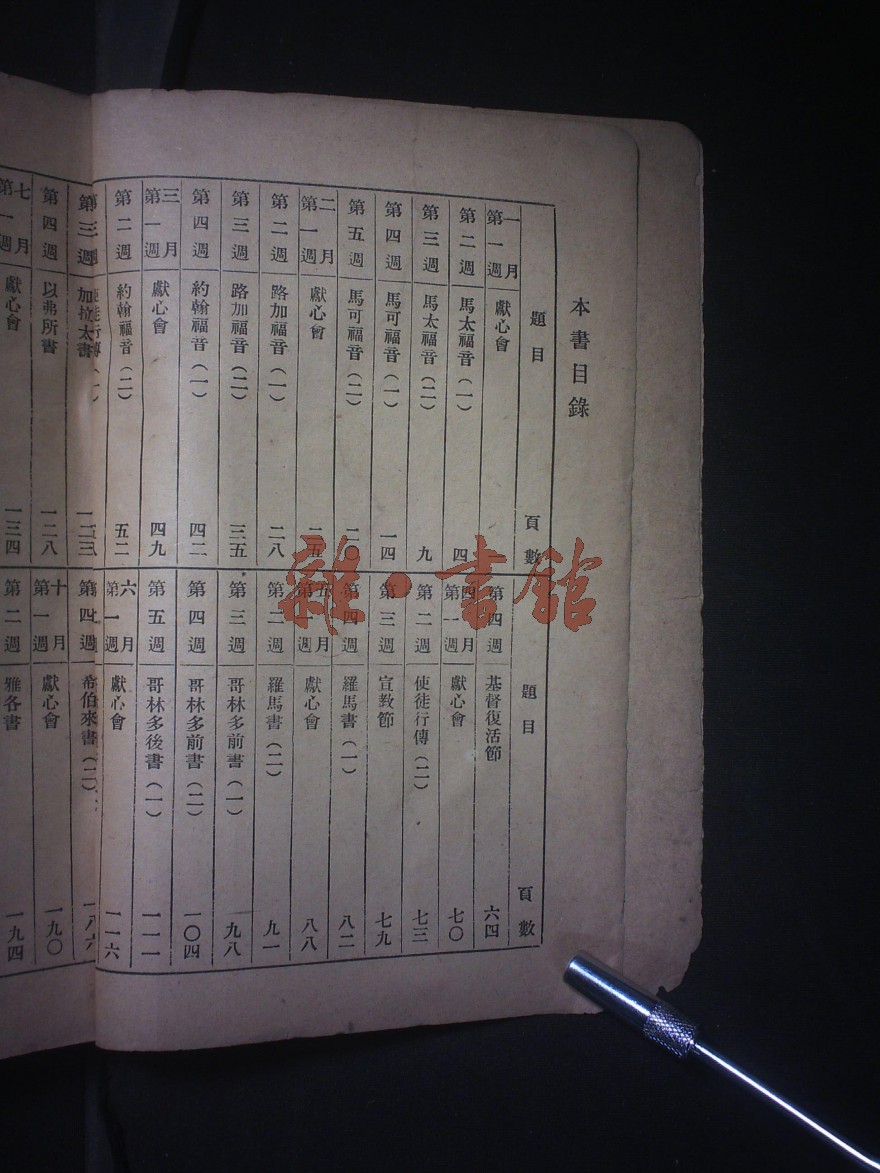 本書目錄
題目 頁數
一月第一週 獻心會
第二週 馬太福音(一) 四
第三週 馬太福音(二) 九
第四週 馬可福音(一) 一四
第五週 馬可福音(二) 二〇
二月第一週 獻心會 二五
第二週 路加福音(一) 二八
第三週 路加福音(二) 三五
第四週 約翰福音(一) 四二
三月第一週 獻心會 四九
第二週 約翰福音(二) 五二
第三週 加拉太書 一二三
第四週 以弗所書 一二八
七月第一週 獻心會 一三四
題目 頁數
第四週 基督復活節 六四
四月第一週 獻心會 七〇
第二週 使徒行傳(二) 七三
第三週 宣教節 七九
第四週 羅馬書(一) 八二
五月第一週 獻心會 八八
第二週 羅馬書(二) 九一
第三週 哥林多前書(一) 九八
第四週 哥林多前書(二) 一〇四
第五週 哥林多後書(一) 一一一
六月第一週 獻心會 一一六
第四週 希伯來書(二) 一八六
十月第一週 獻心會 一九〇
第二週 雅各書 一九四
雜·書館